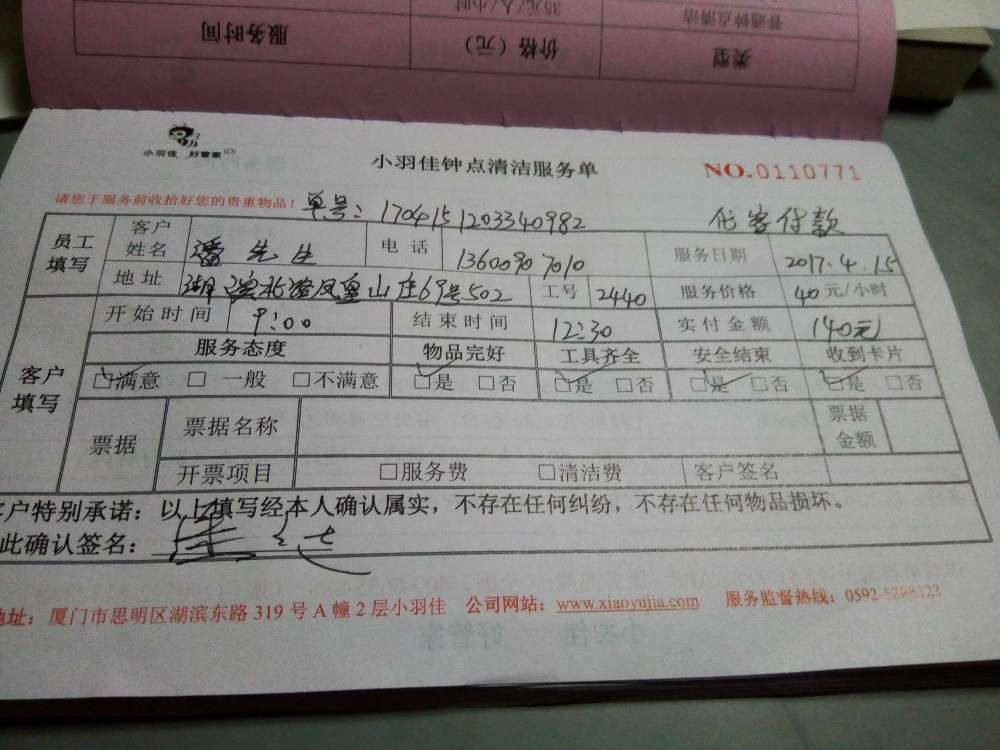 服务时间 价格（元） 类型
35元/人/小时 普通钟点清洁
小羽佳 好管家
小羽佳钟点清洁服务单
NO.0110771
请您于服务前收拾好您的贵重物品！ 单号：1704151203340982 代客付款
员工填写 客户姓名 潘先生 电话 13600907010 服务日期 2017.4.15
地址 湖滨北路凤凰山庄69号502 工号 2440 服务价格 40元/小时
客户填写 开始时间 9:00 结束时间 12:30 实付金额 140元
服务态度 物品完好 工具齐全 安全结束 收到卡片
□满意 □一般 □不满意 □是 □否 □是 □否 □是 □否 □是 □否
票据 票据名称 票据金额
开票项目 □服务费 □清洁费 客户签名
客户特别承诺：以上填写经本人确认属实，不存在任何纠纷，不存在任何物品损坏。
此确认签名：
地址：厦门市思明区湖滨东路319号A幢2层小羽佳 公司网站：www.xiaoyujia.com 服务监督热线：0592-5398123
小羽佳 好管家